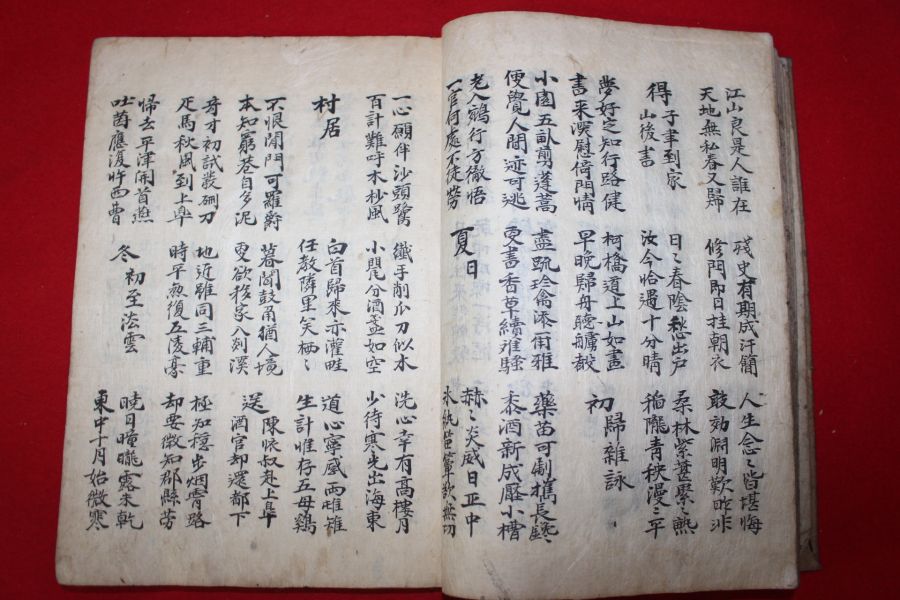 江山良是人誰在
天地無私春又歸
殘史有期成汗簡
修門即日挂朝衣
人生念〻皆堪悔
敢効淵明歎昨非
得子聿到家
山後書
日〻春陰愁出户
汝今恰過十分晴
桑林紫葚累〻熟
稲隴青秧漫〻平
夢好定知行路健
書来深慰倚門情
柯橋道上山如畫
早晚歸舟聽艣聲
初歸雜詠
小園五畝剪蓬蒿
便覺人間迹可逃
盡疏珍禽添尔雅
更書香草續離騷
藥苗可劚攜長鑱
黍酒新成壓小槽
老人鵶行方徹悟
一官何處不徒勞
夏日
赫〻炎威日正中
氷紈菌簟欲無功
一心願伴沙頭鷺
百計難呼木杪風
纖手削瓜刀似水
小甖分酒盞如空
洗心幸有高樓月
少待寒光出海東
村居
白首歸來亦灌畦
任教隣里笑栖〻
道心寧感兩雌雉
生計惟存五母鷄
不恨閑門可羅爵
本知窮巷自多泥
暮聞鼓角猶人境
更欲移家入剡溪
送陳懷叔赴上皐
酒官却還都下
奇才初試發硎刀
疋馬秋風到上皐
地近雖同三輔重
時平無復五陵豪
極知穩步烟霄路
却要微知郡縣勞
歸去平津開首燕
吐茵應復忤西曹
冬初至法雲
曉日曈曨露未乾
東中十月始微寒